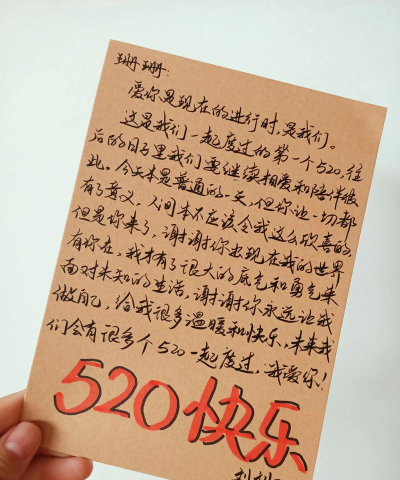 珊珊:
爱你是现在的进行时,是我们。
这是我们一起度过的第一个520,往
后的日子里我们要继续相爱和陪伴彼
此。今天本是普通的一天,但你让一切都
有了意义,人间本不应该令我这么欣喜的,
但是你来了,谢谢你出现在我的世界
有你在,我才有了很大的底气和勇气来
面对未知的生活,谢谢你永远让我
做自己,给我很多温暖和快乐,未来我
们会有很多个520一起度过,我爱你!
520快乐